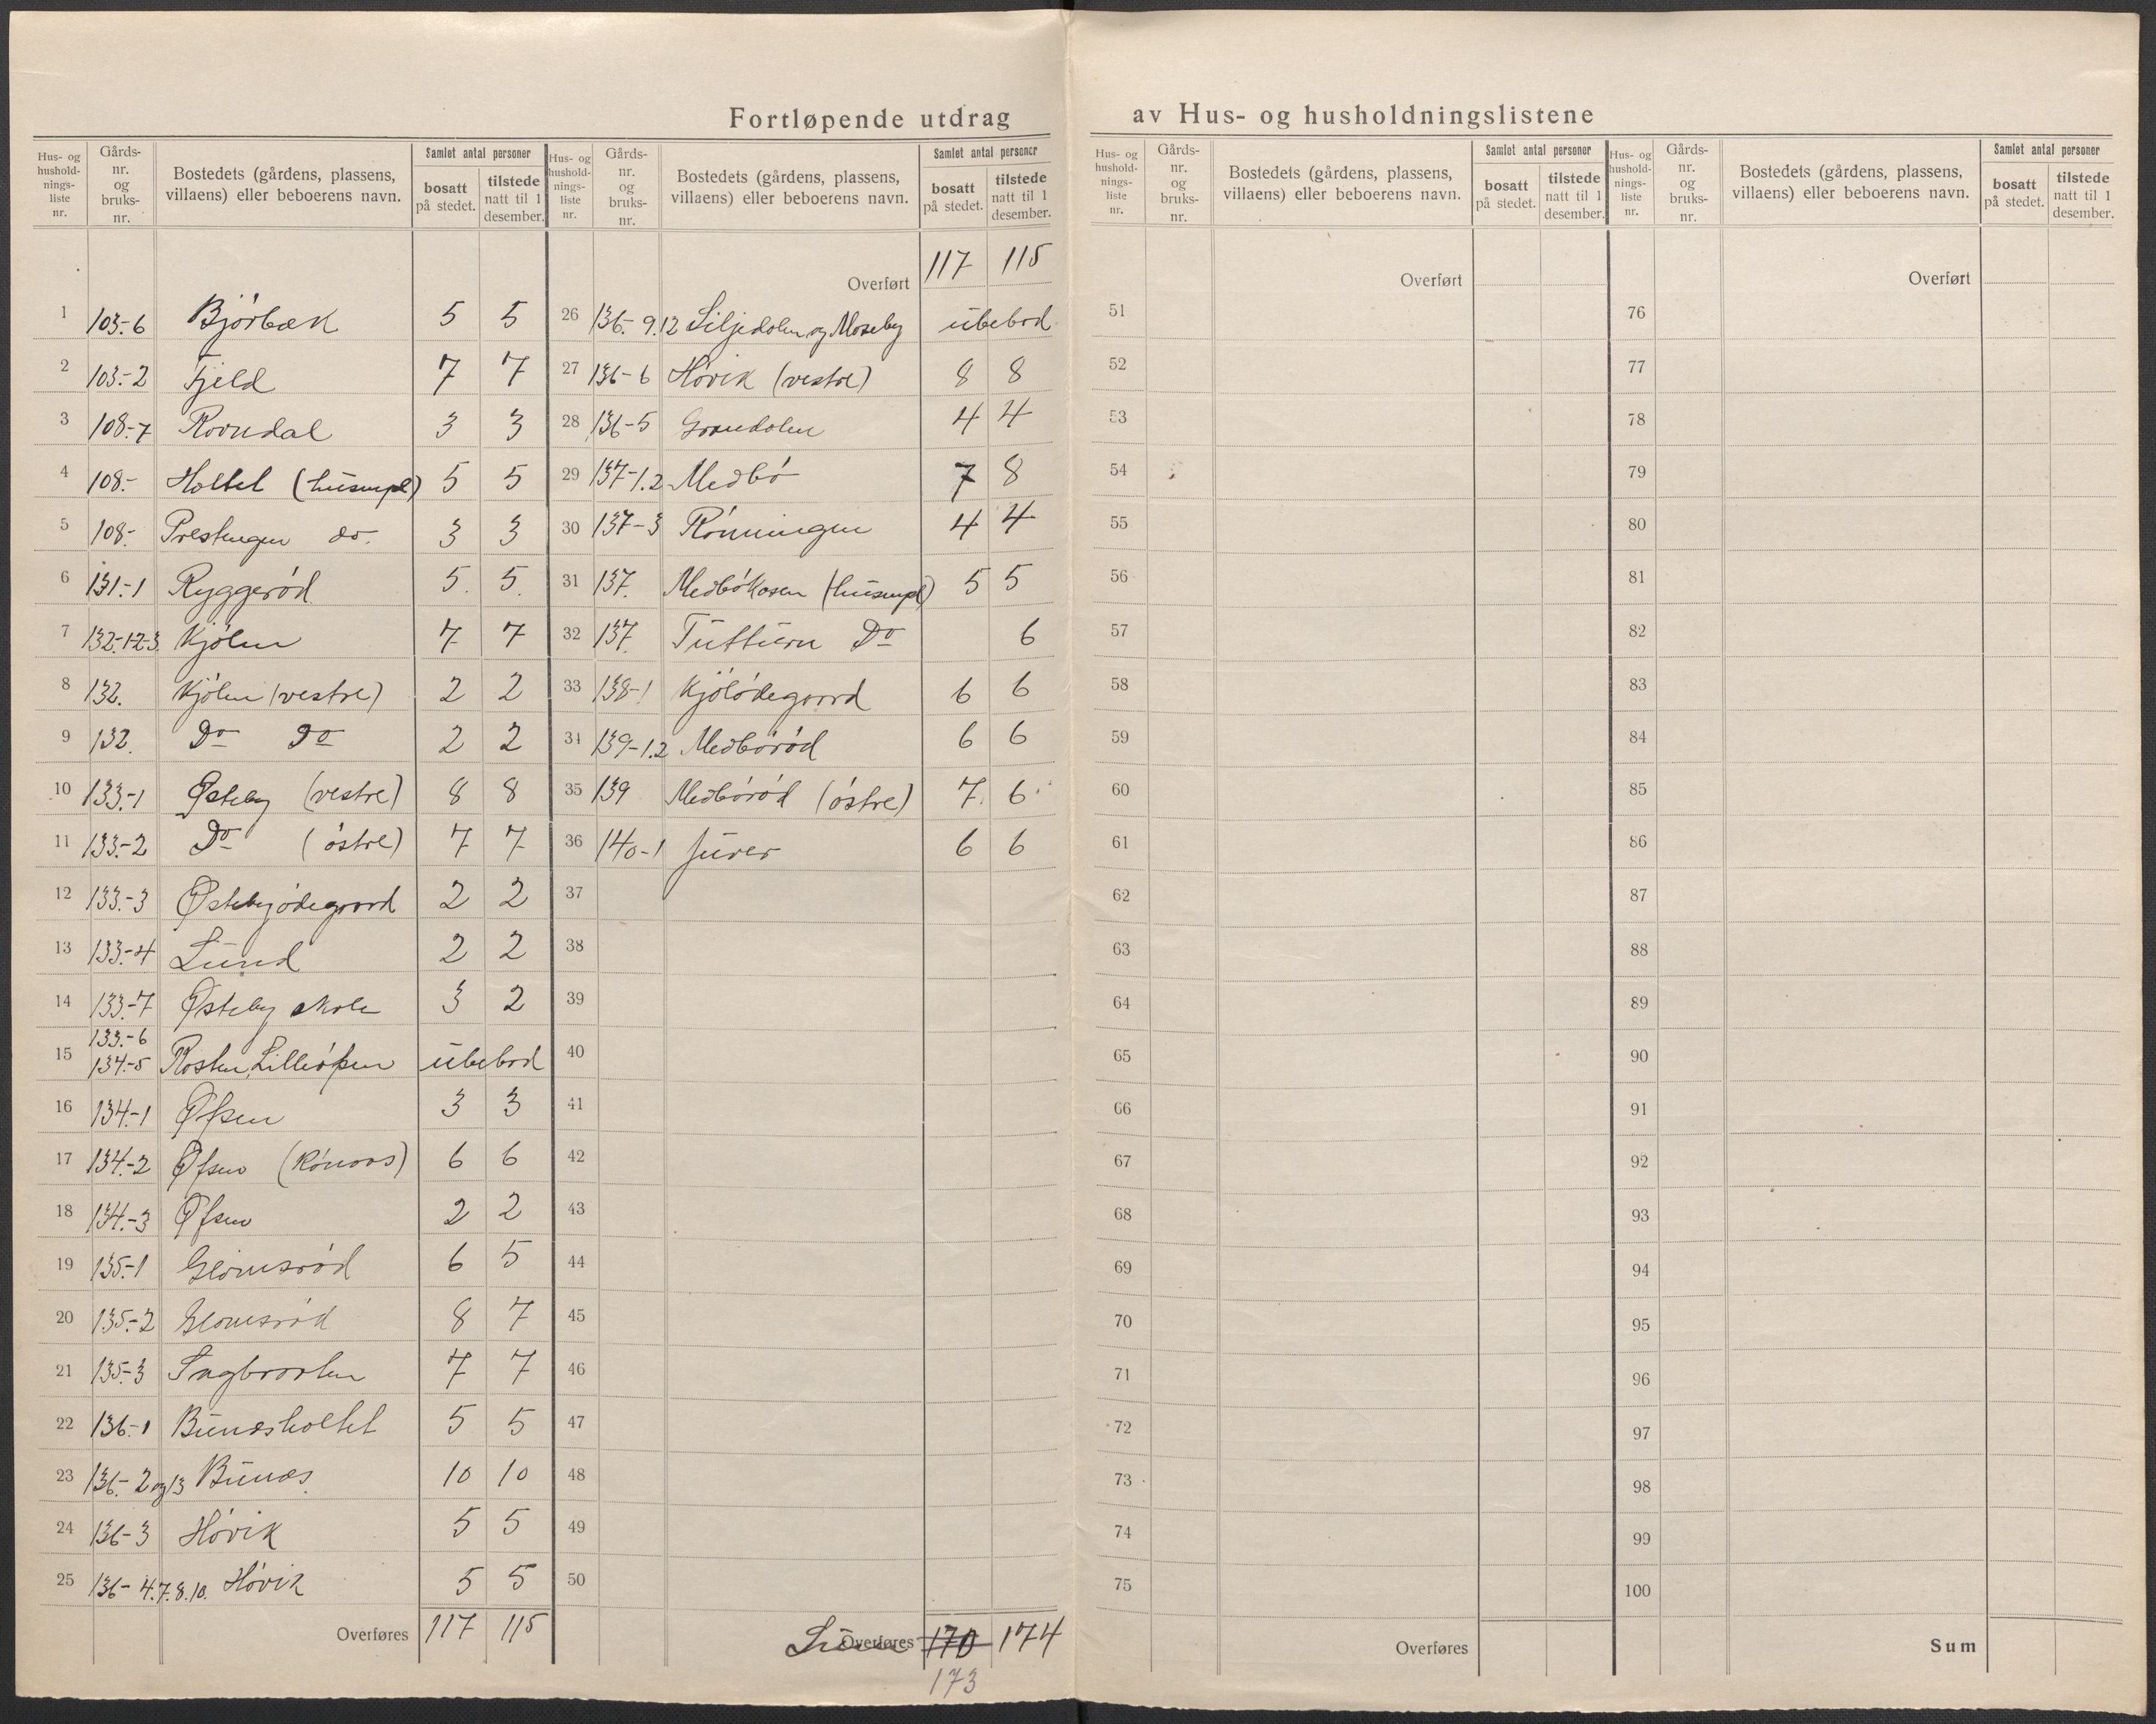 Fortløpende utdrag av Hus- og husholdningslistene
Hus- og hushold-nings-liste nr. Gårds-nr. og bruks-nr. Bostedets (gårdens, plassens, villaens) eller beboerens navn. Samlet antal personer bosatt på stedet. tilstede natt til 1 desember.
1 103.-6 Bjørbæk 5 5
2 103.-2 Fjeld 7 7
3 108.-7 Rovndal 3 3
4 108.- Holtet (husmpl) 5 5
5 108.- Prestengen do. 3 3
6 131.-1 Ryggerød 5. 5.
7 132.-1-2-3. Kjølen 7 7
8 132. Kjølen (vestre) 2 2
9 132. Do Do 2 2
10 133.-1 Østeby (vestre) 8 8
11 133.-2 Do (østre) 7 7
12 133.-3 Østebyødegaard 2 2
13 133.-4 Lund 2 2
14 133.-7 Østeby skole 3 2
15 133.-6 134.-5 Rosten, Lilleøfsen ubebod
16 134.-1 Øfsen 3 3
17 134.-2 Øfsen (Rønaas) 6 6
18 134.-3 Øfsen 2 2
19 135.-1 Glomsrød 6 5
20 135.-2 Glomsrød 8 7
21 135.-3 Sagbraaten 7 7
22 136.-1 Bunæsholtet 5 5
23 136.-2 og 13 Bunæs. 10 10
24 136-3 Høvik 5 5
25 136-4.7.8.10. Høvik 5 5
Overføres 117 115
Hus- og hushold-nings-liste nr. Gårds-nr. og bruks-nr. Bostedets (gårdens, plassens, villaens) eller beboerens navn. Samlet antal personer bosatt på stedet. tilstede natt til 1 desember.
Overført 117 115
26 136.-9.12 Liljedalen og Moseby ubebod
27 136-6 Høvik (vestre) 8 8
28 136-5 Grandalen 4 4
29 137-1.2 Medbø 7 8
30 137-3 Rønningen 4 4
31 137. Medbøkasen (husmpl) 5 5
32 137. Tutturn Do 6
33 138-1 Kjølødegaard 6 6
34 139-1.2 Medbørød 6 6
35 139 Medbørød (østre) 7. 6
36 140-1 Juver 6 6
37
38
39
40
41
42
43
44
45
46
47
48
49
50
Sum Overføres 170 174
173
Hus- og hushold-nings-liste nr. Gårds-nr. og bruks-nr. Bostedets (gårdens, plassens, villaens) eller beboerens navn. Samlet antal personer bosatt på stedet. tilstede natt til 1 desember.
Overført
51
52
53
54
55
56
57
58
59
60
61
62
63
64
65
66
67
68
69
70
71
72
73
74
75
Overføres
Hus- og hushold-nings-liste nr. Gårds-nr. og bruks-nr. Bostedets (gårdens, plassens, villaens) eller beboerens navn. Samlet antal personer bosatt på stedet. tilstede natt til 1 desember.
Overført
76
77
78
79
80
81
82
83
84
85
86
87
88
89
90
91
92
93
94
95
96
97
98
99
100
Sum